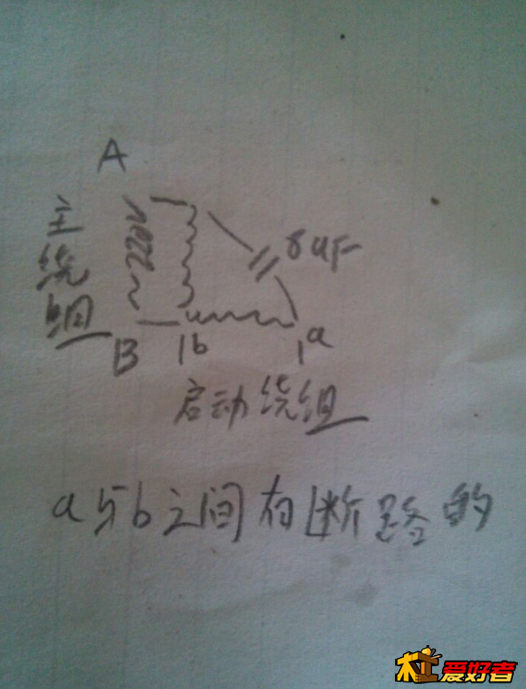 A
主绕组
220V
8uF
B
b
a
启动绕组
a与b之间有断路的
爱好者